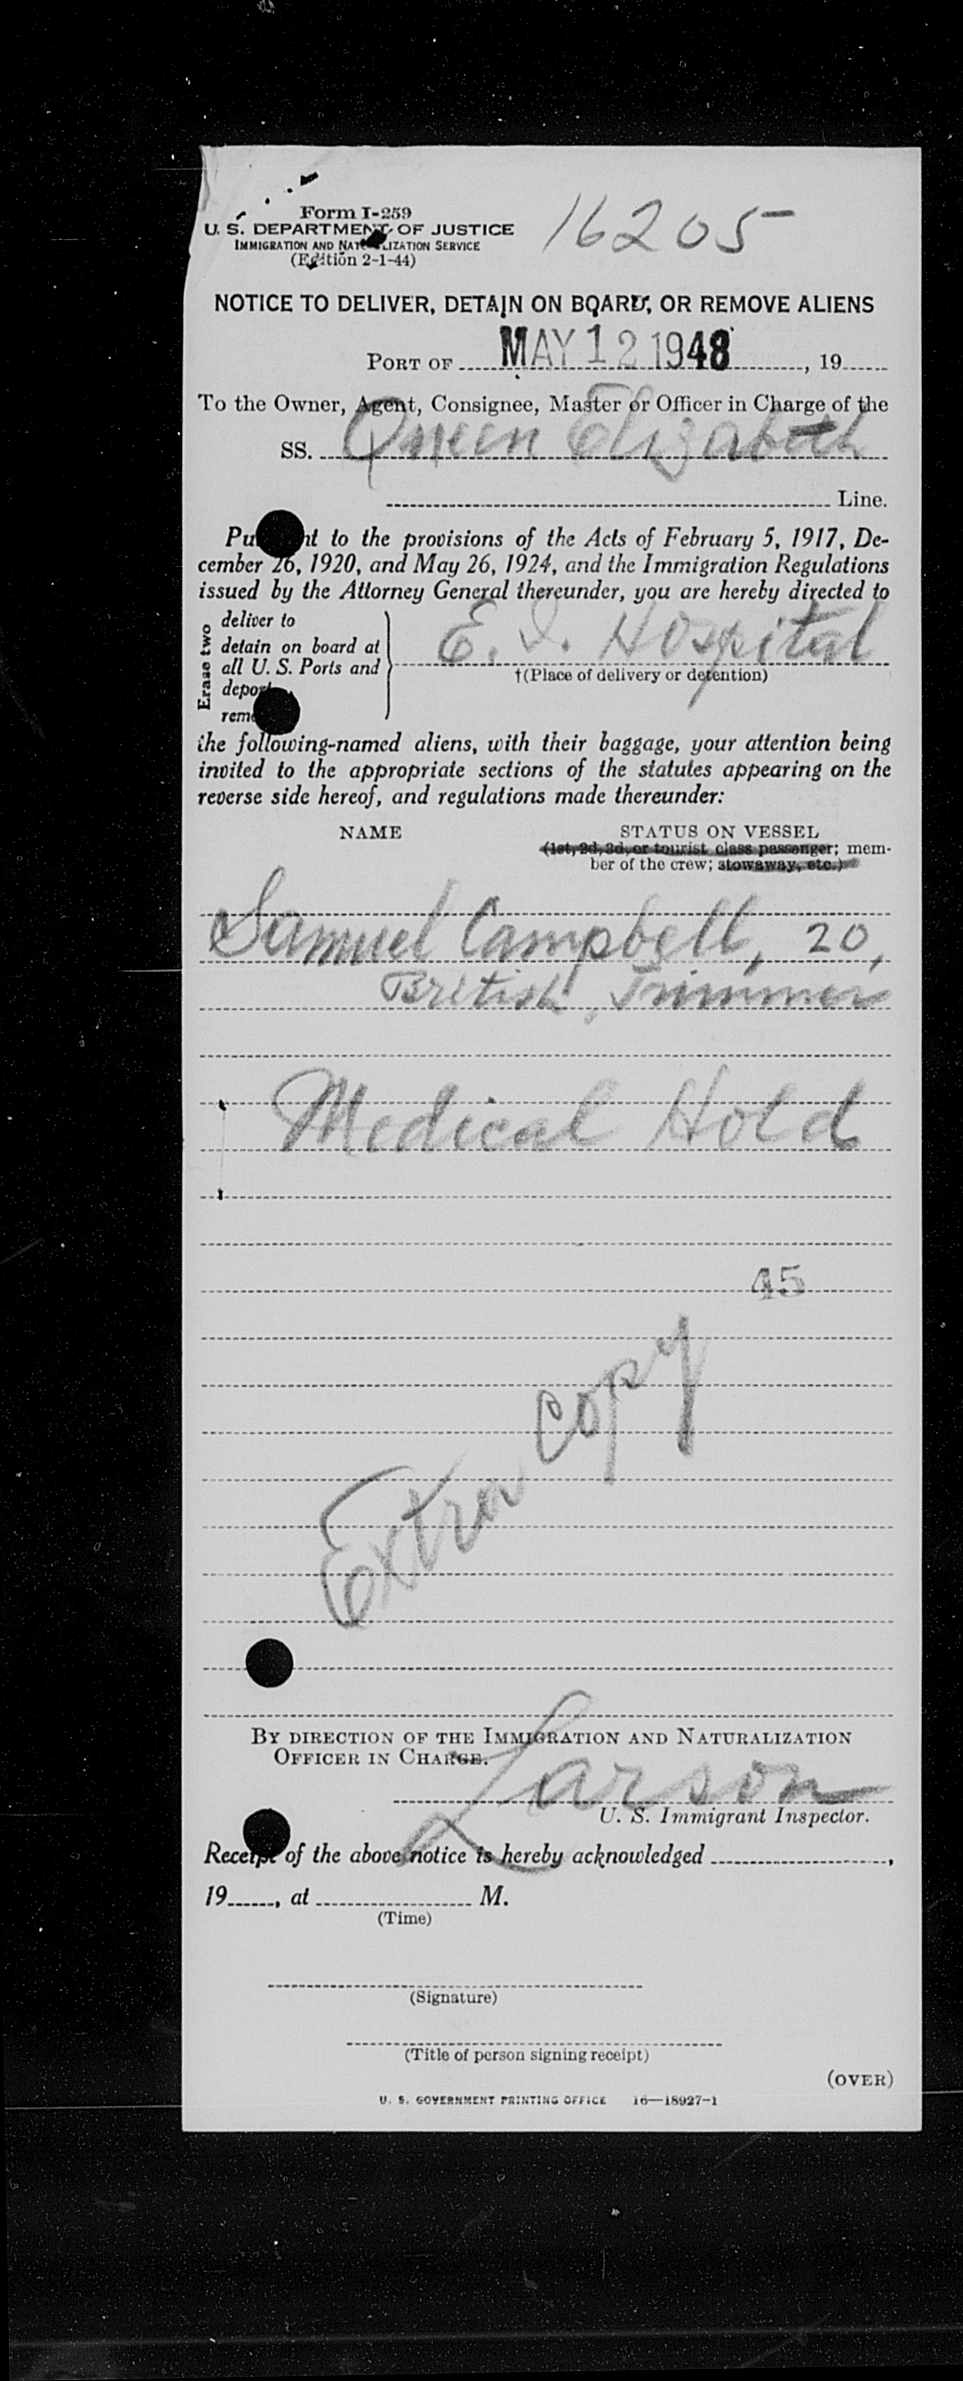 Form I-259
16205
U. S. DEPARTMENT OF JUSTICE
IMMIGRATION AND NATURALIZATION SERVICE
(Edition 2-1-44)
NOTICE TO DELIVER, DETAIN ON BOARD, OR REMOVE ALIENS
PORT OF MAY 12 1948, 19
To the Owner, Agent, Consignee, Master or Officer in Charge of the
SS. Queen Elizabeth
Line.
to the provisions of the Acts of February 5, 1917, De-
cember 26, 1920, and May 26, 1924, and the Immigration Regulations
issued by the Attorney General thereunder, you are hereby directed to
Erase two
deliver to
detain on board at
all U. S. Ports and
E. I. Hospital
†(Place of delivery or detention)
the following-named aliens, with their baggage, your attention being
invited to the appropriate sections of the statutes appearing on the
reverse side hereof, and regulations made thereunder:
NAME STATUS ON VESSEL
(1st, 2d, 3d, or tourist class passenger; mem-
ber of the crew; stowaway, etc.)
Samuel Campbell, 20,
British, Trimmer
Medical Hold
45
Extra copy
BY DIRECTION OF THE IMMIGRATION AND NATURALIZATION
OFFICER IN CHARGE.
Larson
U. S. Immigrant Inspector.
Receipt of the above notice is hereby acknowledged ,
19 , at M.
(Time)
(Signature)
(Title of person signing receipt)
(OVER)
U. S. GOVERNMENT PRINTING OFFICE 16—18927-1